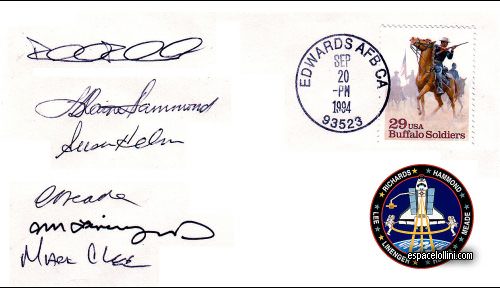 L. Blaine Hammond
Susan Helms
C Meade
Mark C Lee
EDWARDS AFB CA
SEP
20
-PM
1994
93523
29 USA
Buffalo Soldiers
RICHARDS
HAMMOND
LEE
MEADE
LINENGER
espacelollini.com ©